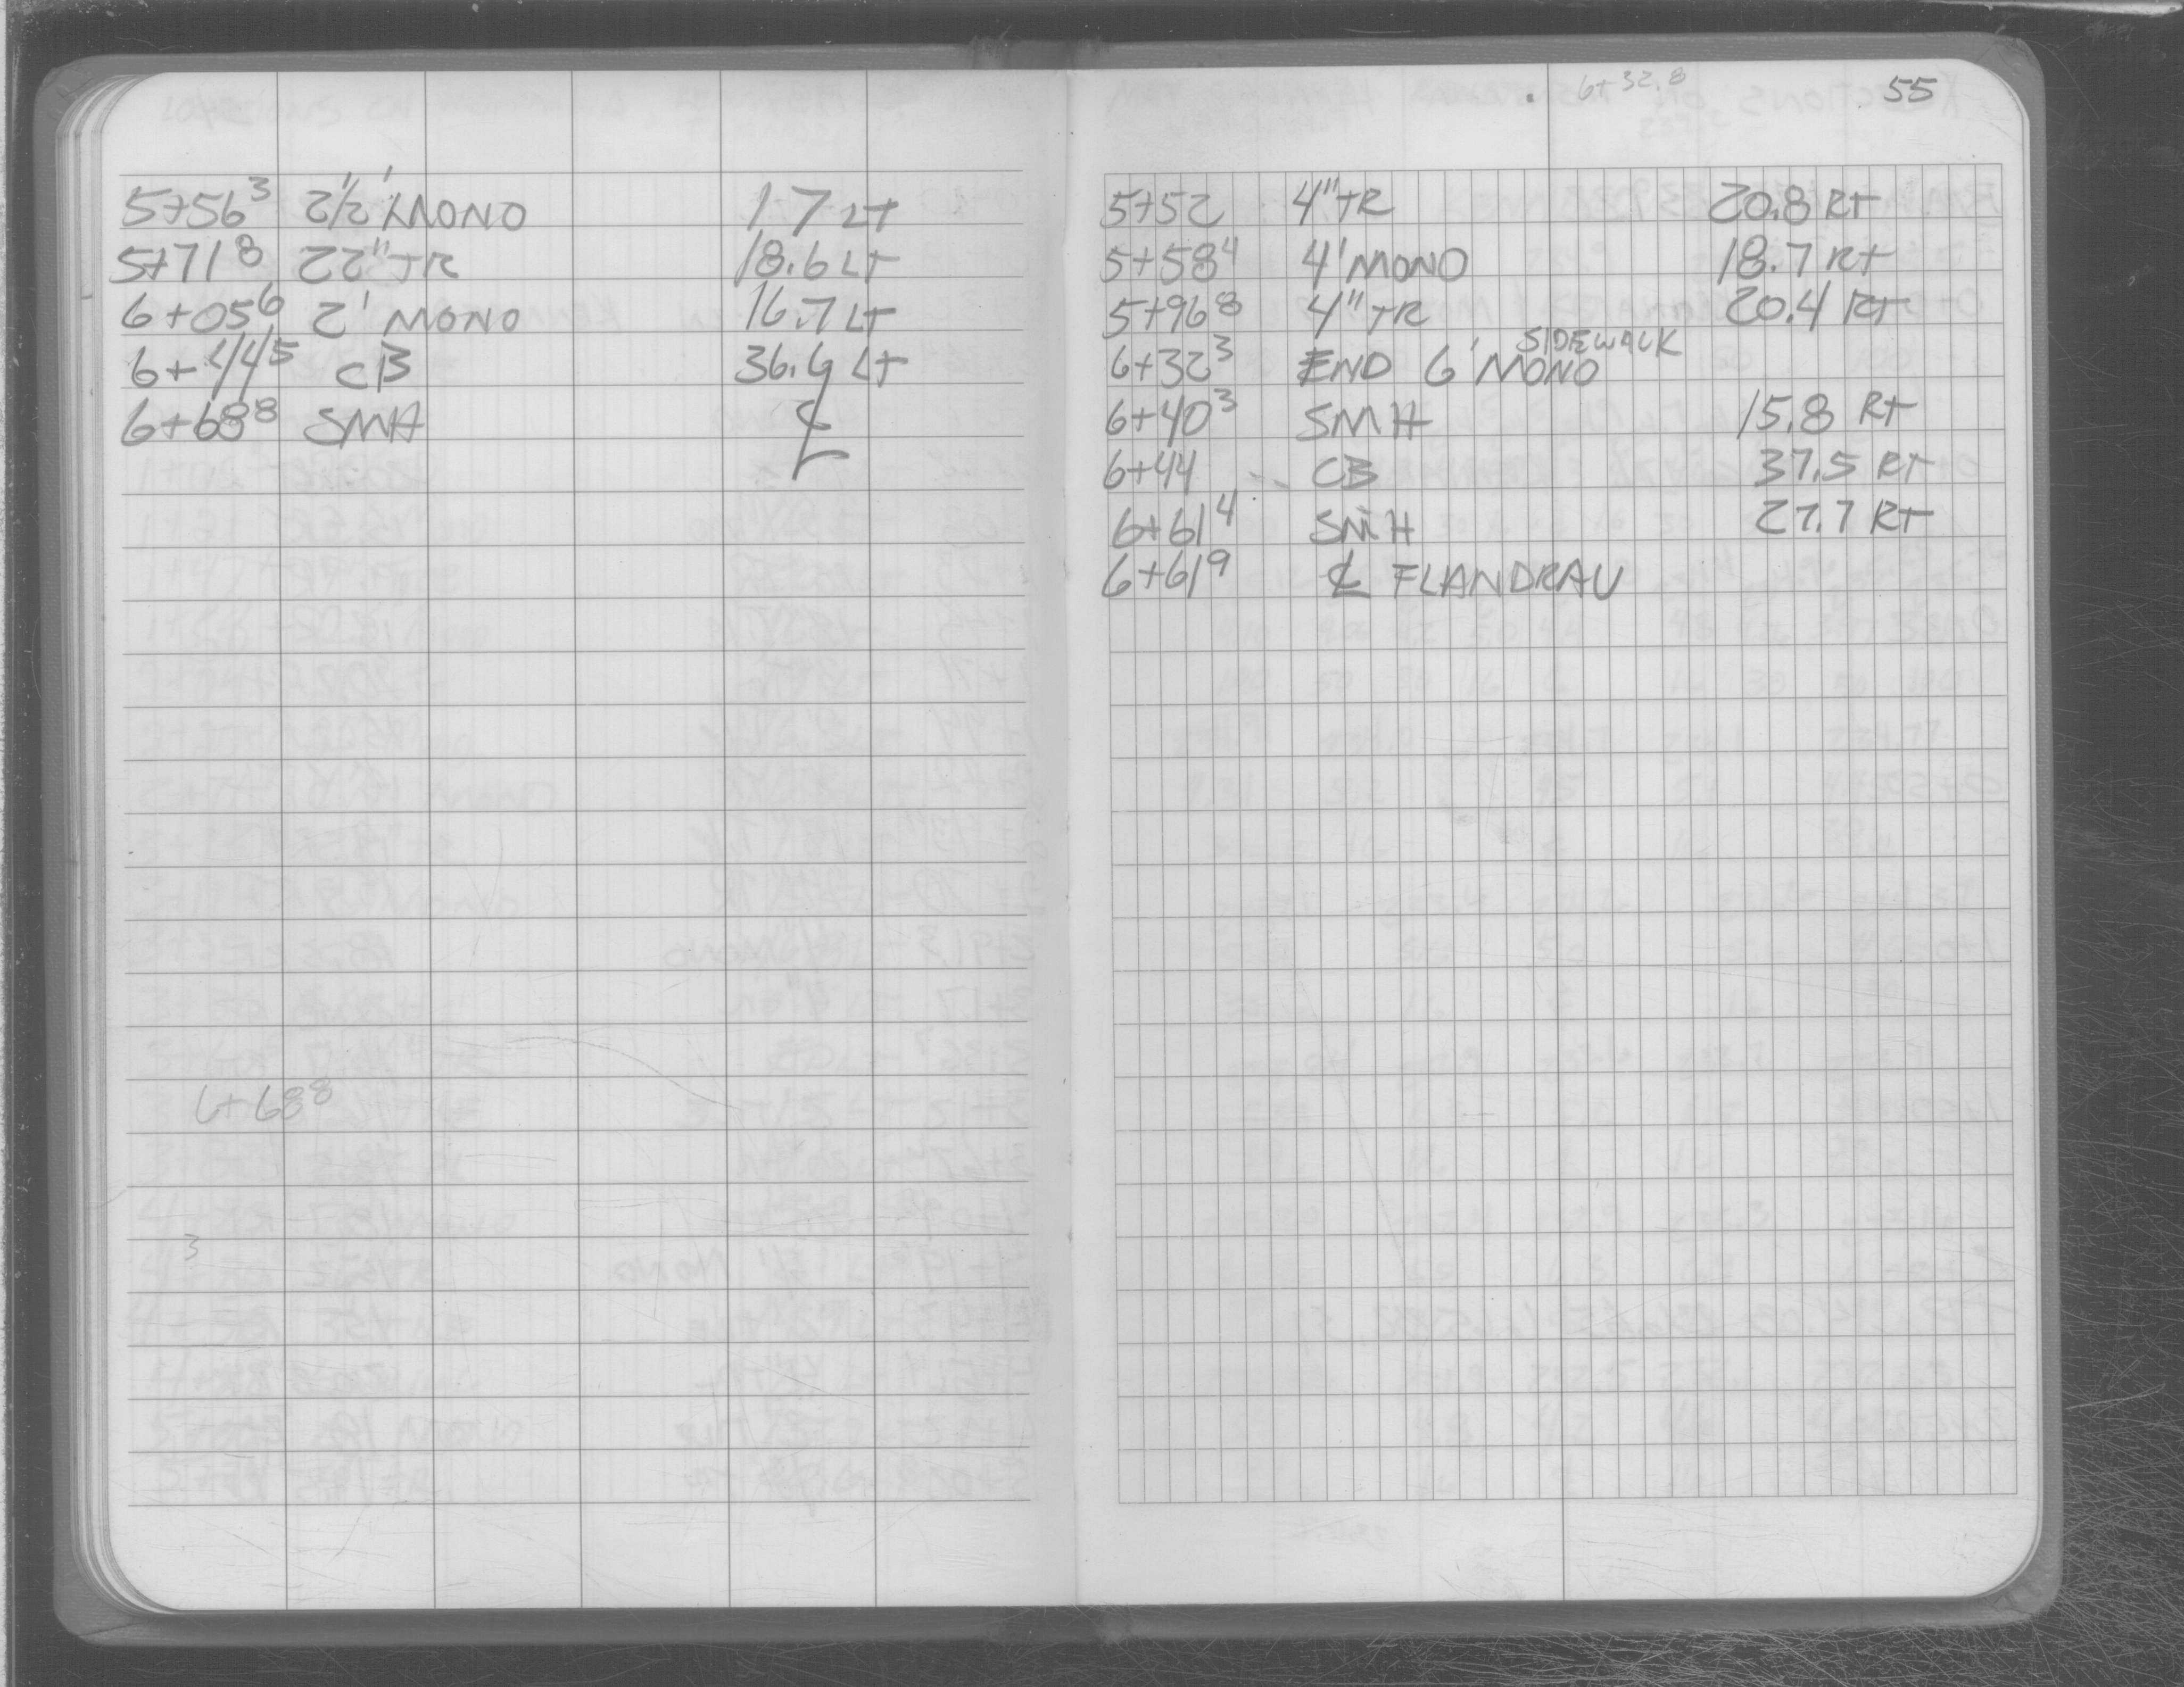 5+56³ 2½' MONO 17 LT
5+71⁸ 22" TR 18.6 LT
6+05⁶ 2' MONO 16.7 LT
6+44⁵ CB 36.4 LT
6+68⁸ SMH ℄
6+68⁸
3
6+32.8 55
5+52 4" TR 20.8 RT
5+58⁴ 4' MONO 18.7 RT
5+96⁸ 4" TR 20.4 RT
6+32³ END 6' MONO SIDEWALK
6+40³ SMH 15.8 RT
6+44 CB 37.5 RT
6+61⁴ SMH 27.7 RT
6+61⁹ ℄ FLANDRAU